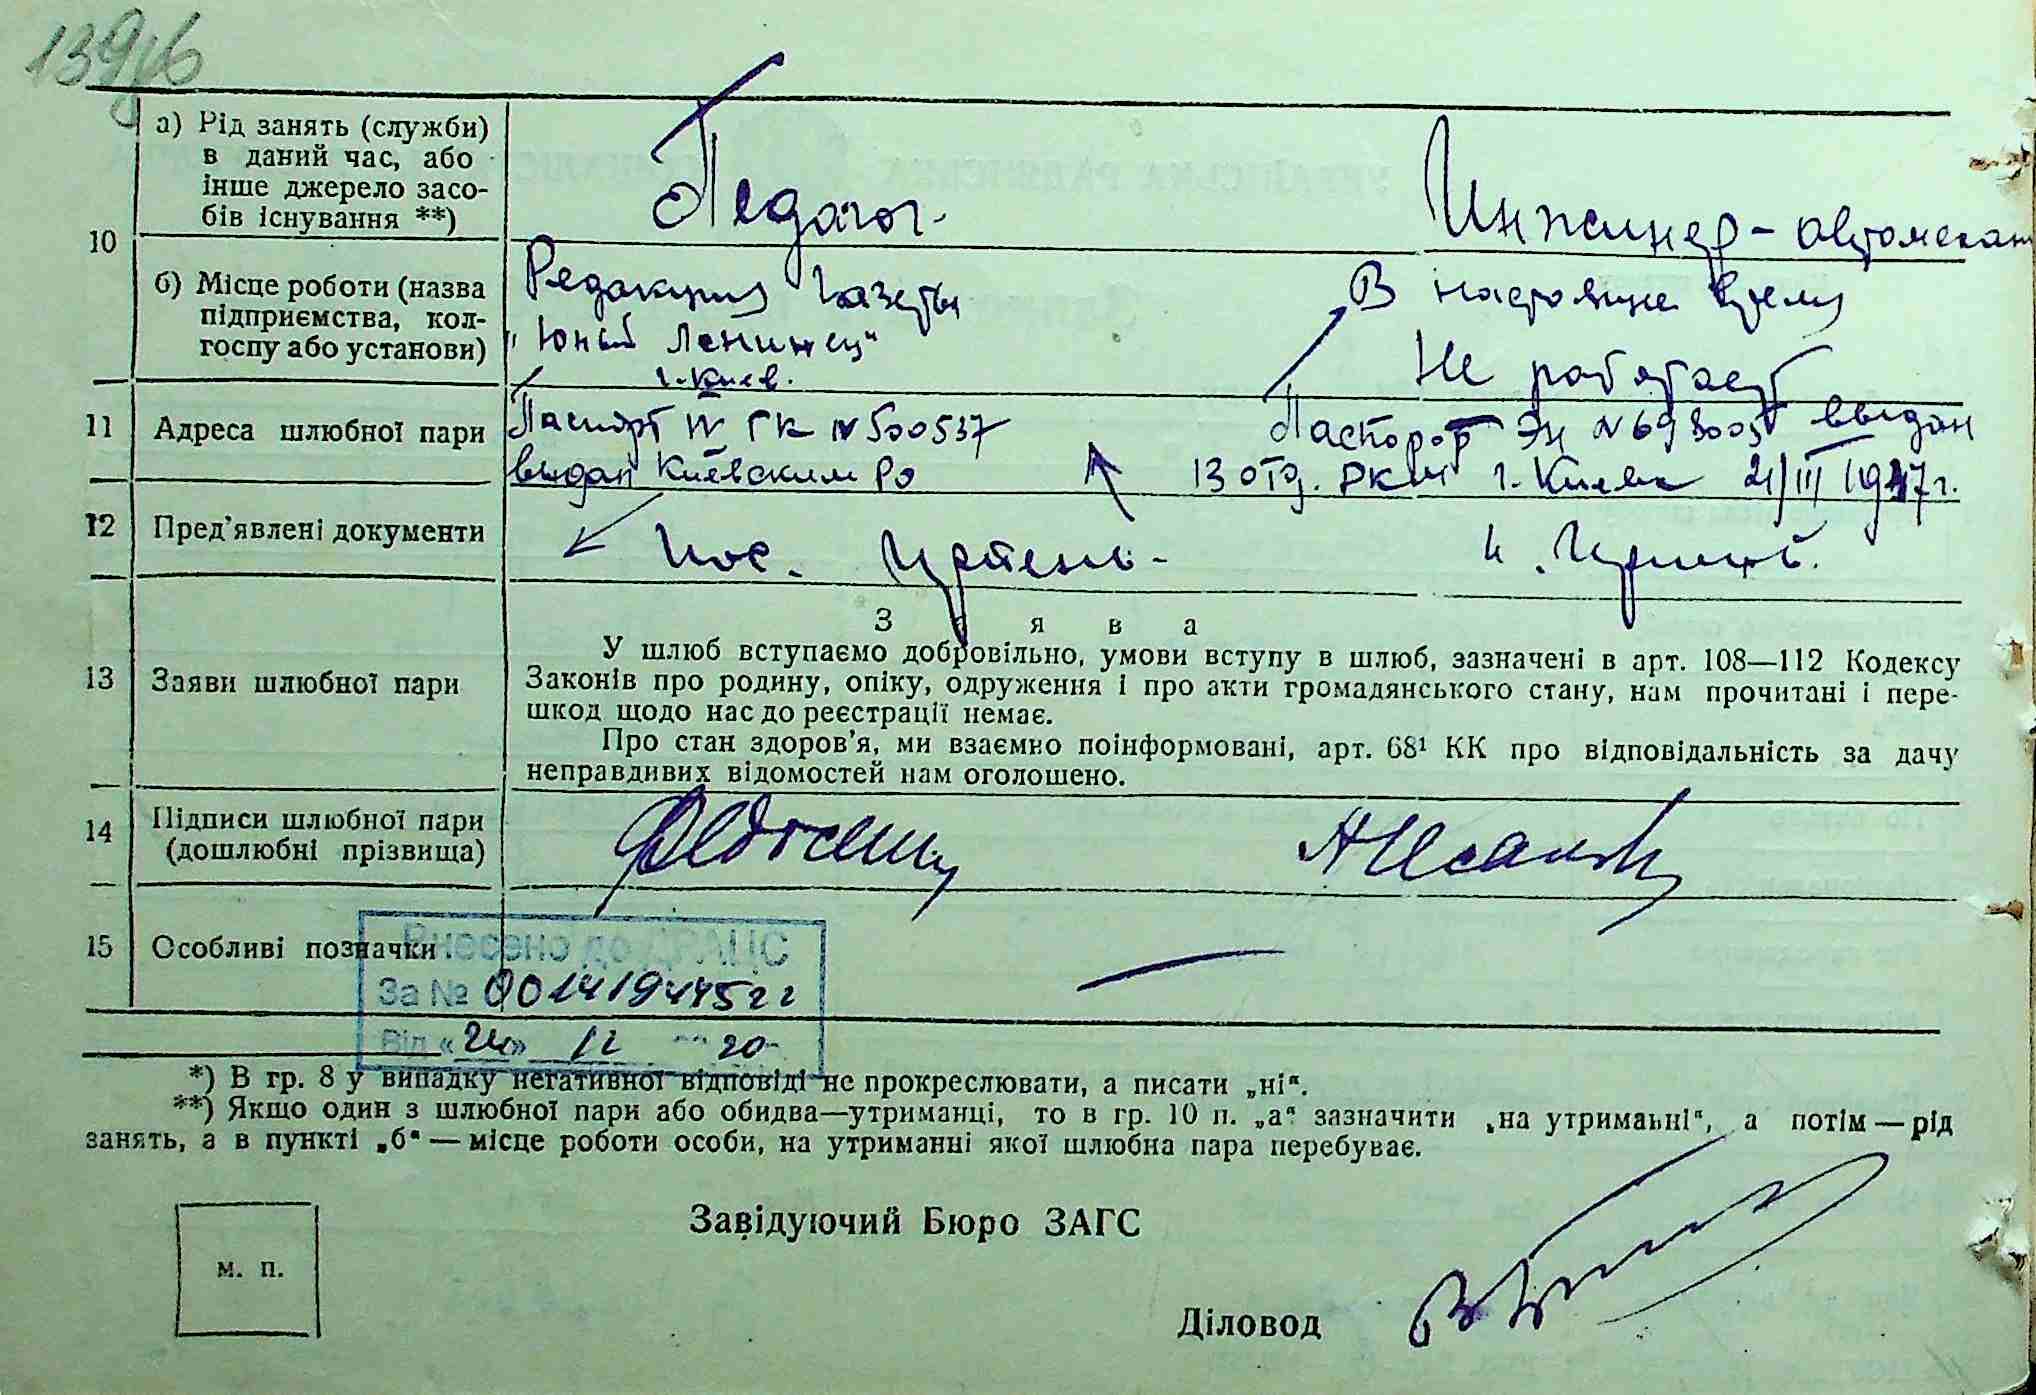 139
а) Рід занять (служби)
в даний час, або
інше джерело засо-
бів існування **)
Педагог.
Инженер - автомехан
10
б) Місце роботи (назва
підприємства, кол-
госпу або установи)
Редакция газеты
„Юный Ленинец“
г. Киев.
В настояще время
Не работает
11
Адреса шлюбної пари
Паспорт ГК № 500537
выдан Киевским РО
Паспорт № 693005 выдан
13 отд. РКМ г. Киева 21/III 1947г.
12
Пред’явлені документи
пос. Ирпень.
п. Ирпень.
Заява
13
Заяви шлюбної пари
У шлюб вступаємо добровільно, умови вступу в шлюб, зазначені в арт. 108—112 Кодексу
Законів про родину, опіку, одруження і про акти громадянського стану, нам прочитані і пере-
шкод щодо нас до реєстрації немає.
Про стан здоров’я, ми взаємно поінформовані, арт. 68¹ КК про відповідальність за дачу
неправдивих відомостей нам оголошено.
14
Підписи шлюбної пари
(дошлюбні прізвища)
15
Особливі позначки
Внесено до ДРАЦС
За № 00141944522
Від «24» 12 20
*) В гр. 8 у випадку негативної відповіді не прокреслювати, а писати „ні“.
**) Якщо один з шлюбної пари або обидва—утриманці, то в гр. 10 п. „а“ зазначити „на утриманні“, а потім — рід
занять, а в пункті „б“ — місце роботи особи, на утриманні якої шлюбна пара перебуває.
Завідуючий Бюро ЗАГС
м. п.
Діловод